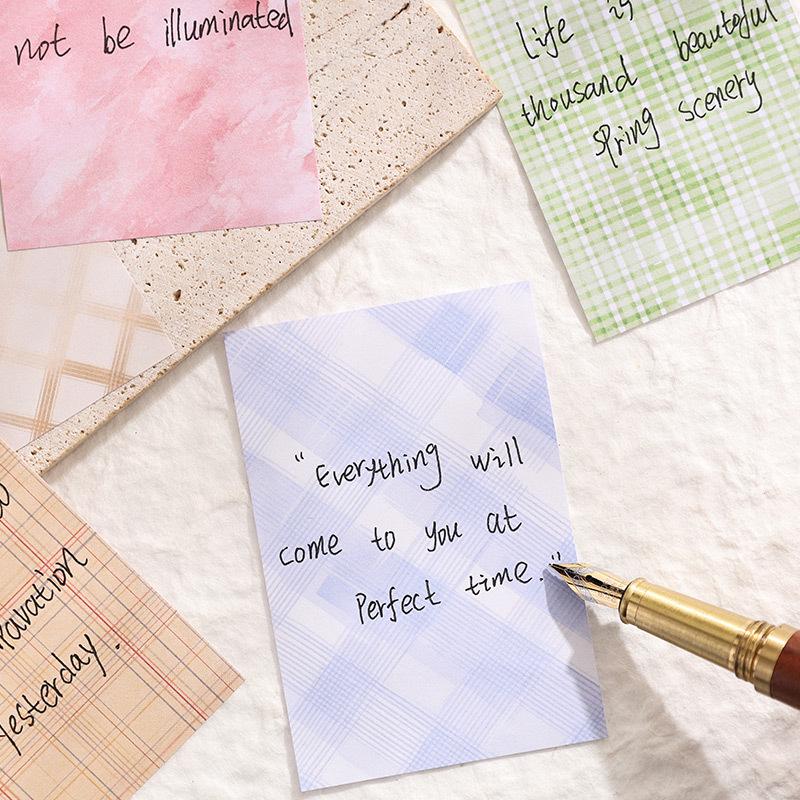 not be illuminated
Life is
thousand beautoful
spring scenery
"Everything will
come to you at
Perfect time."
Yesterday.